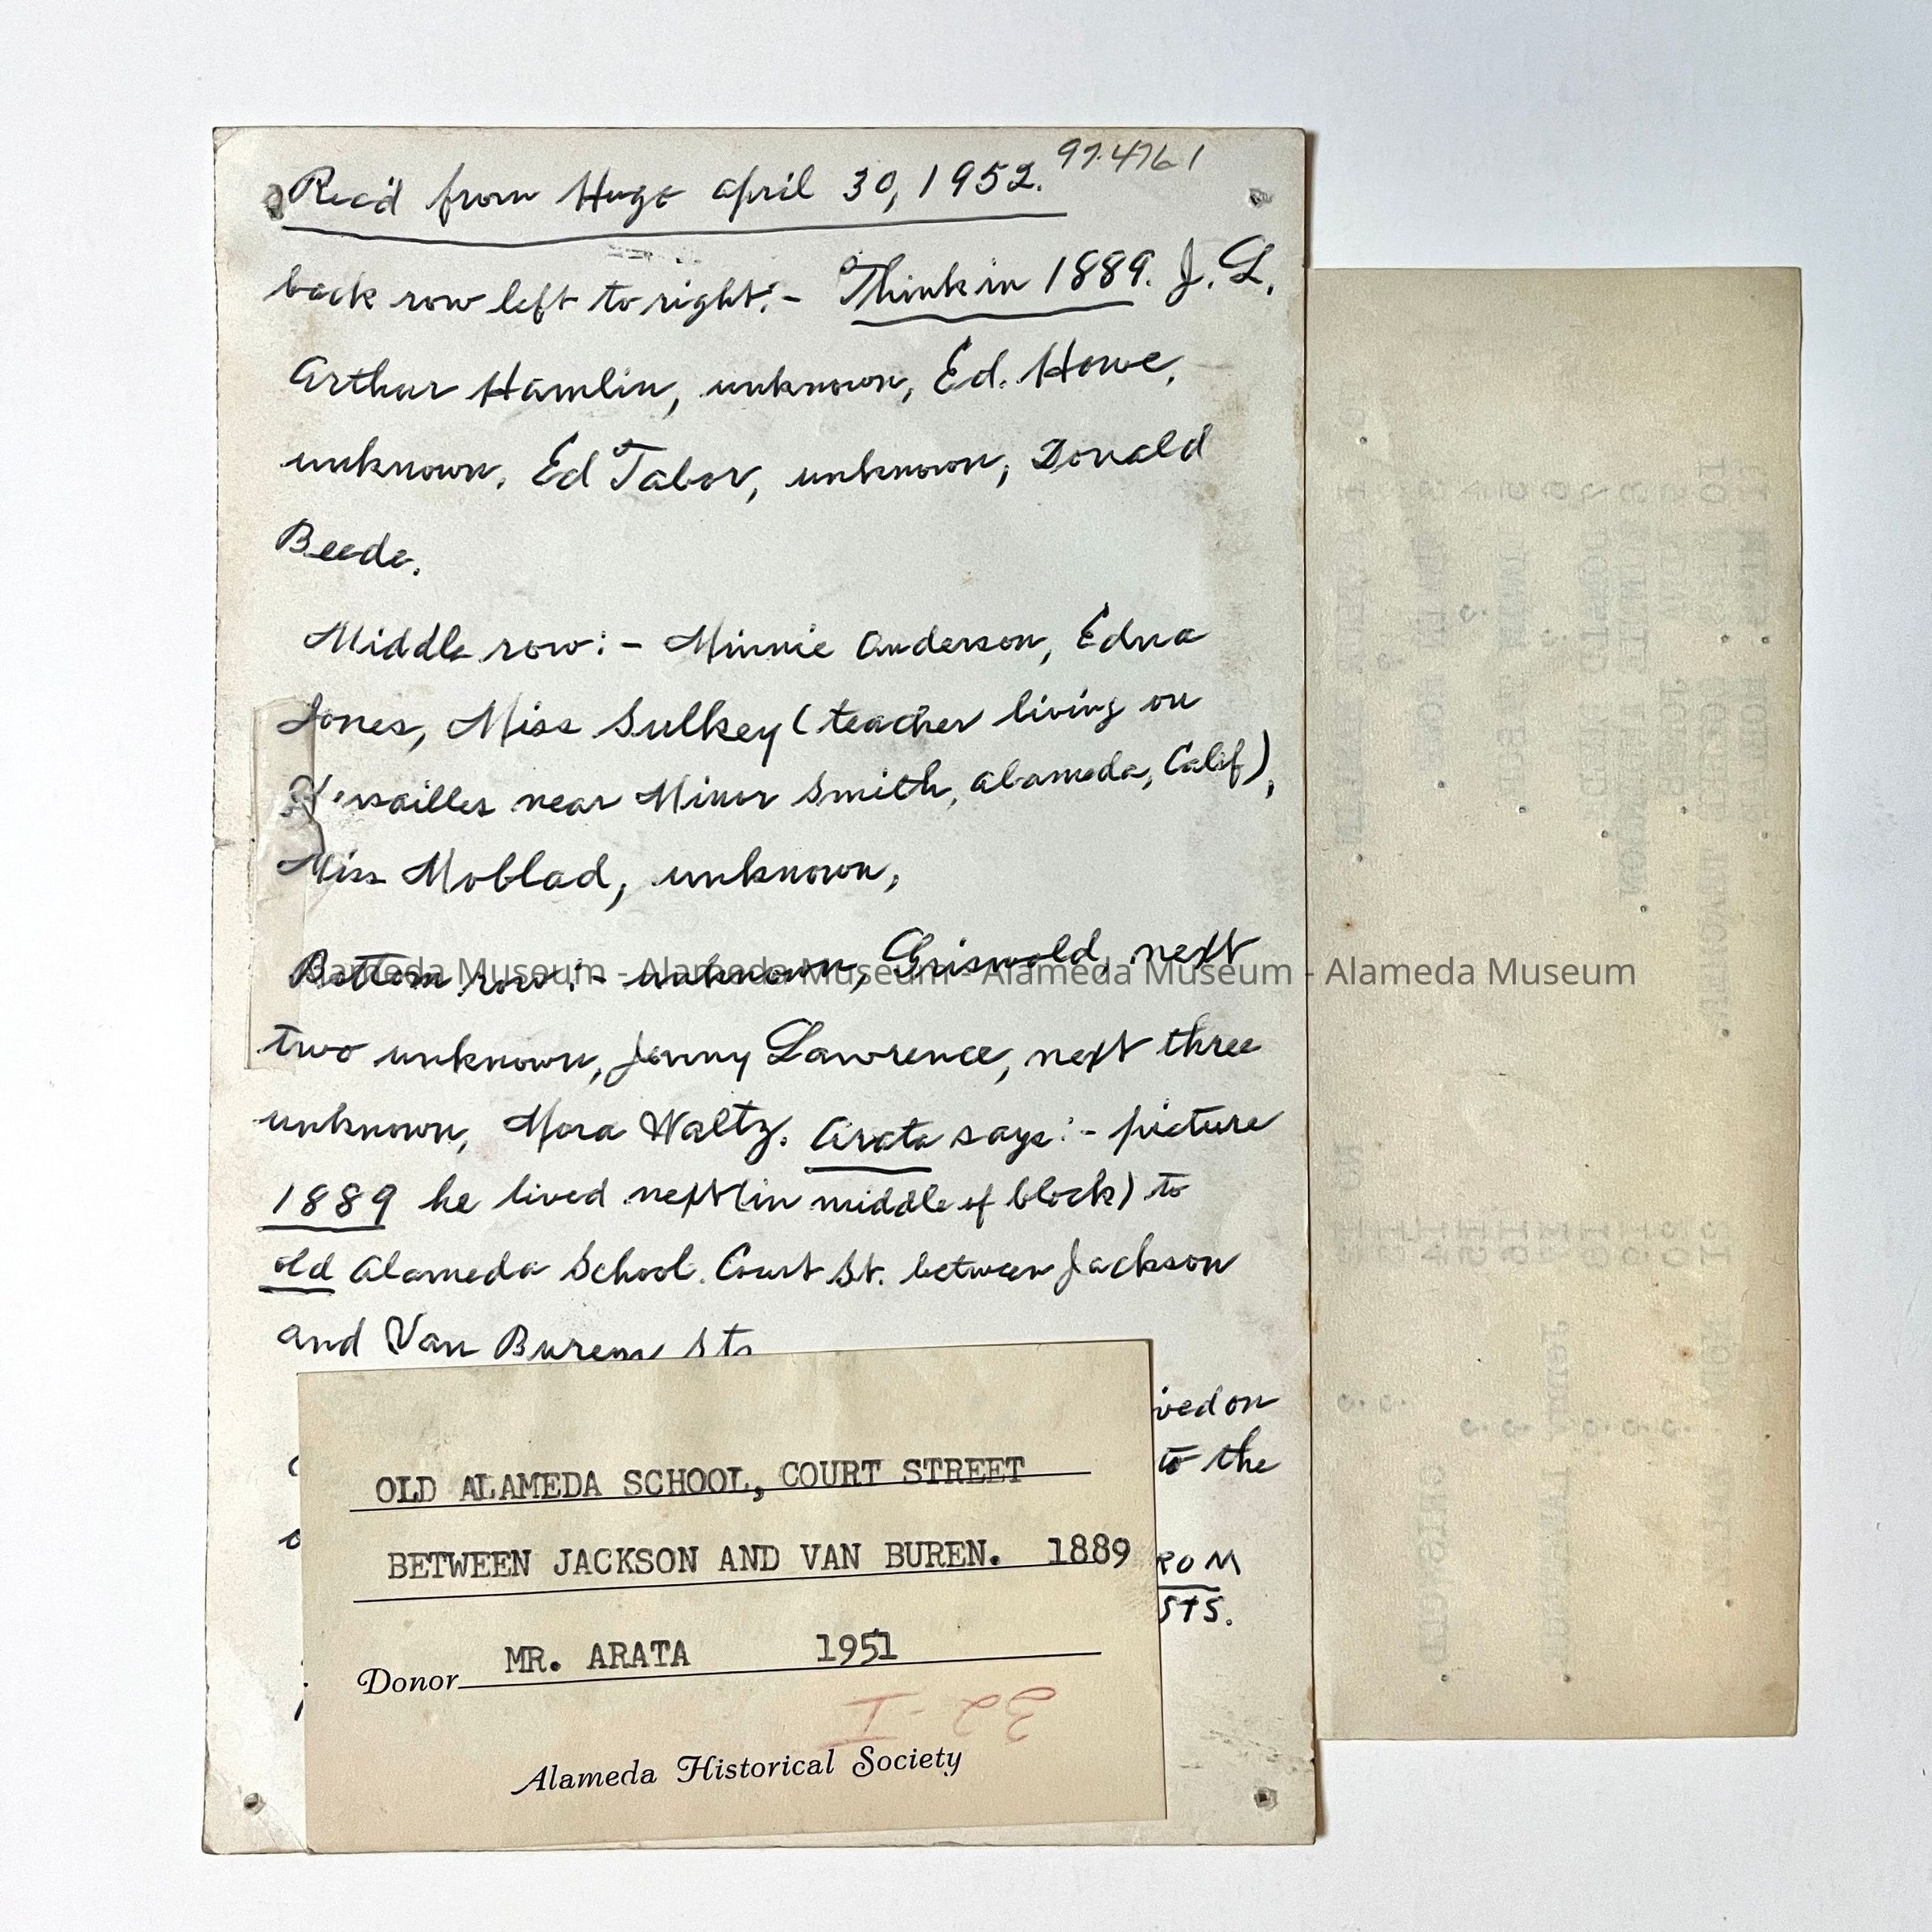 97.476 1
Rec'd from Hugo April 30, 1952.
back row left to right:- Think in 1889. J. L.
Arthur Hamlin, unknown, Ed. Howe,
unknown, Ed Tabor, unknown, Donald
Beede.
Middle row:- Minnie Anderson, Edna
Jones, Miss Sulkey (teacher living on
Versailles near Minor Smith, Alameda, Calif),
Miss Moblad, unknown,
Bottom row:- unknown, Griswold, next
Alameda Museum - Alameda Museum - Alameda Museum - Alameda Museum
two unknown, Jenny Lawrence, next three
unknown, Mora Waltz. Arata says:- picture
1889 he lived next (in middle of block) to
old Alameda School. Court St. between Jackson
and Van Buren Sts
ved on
to the
ROM
STS.
OLD ALAMEDA SCHOOL, COURT STREET
BETWEEN JACKSON AND VAN BUREN. 1889
Donor MR. ARATA 1951
32-I
Alameda Historical Society